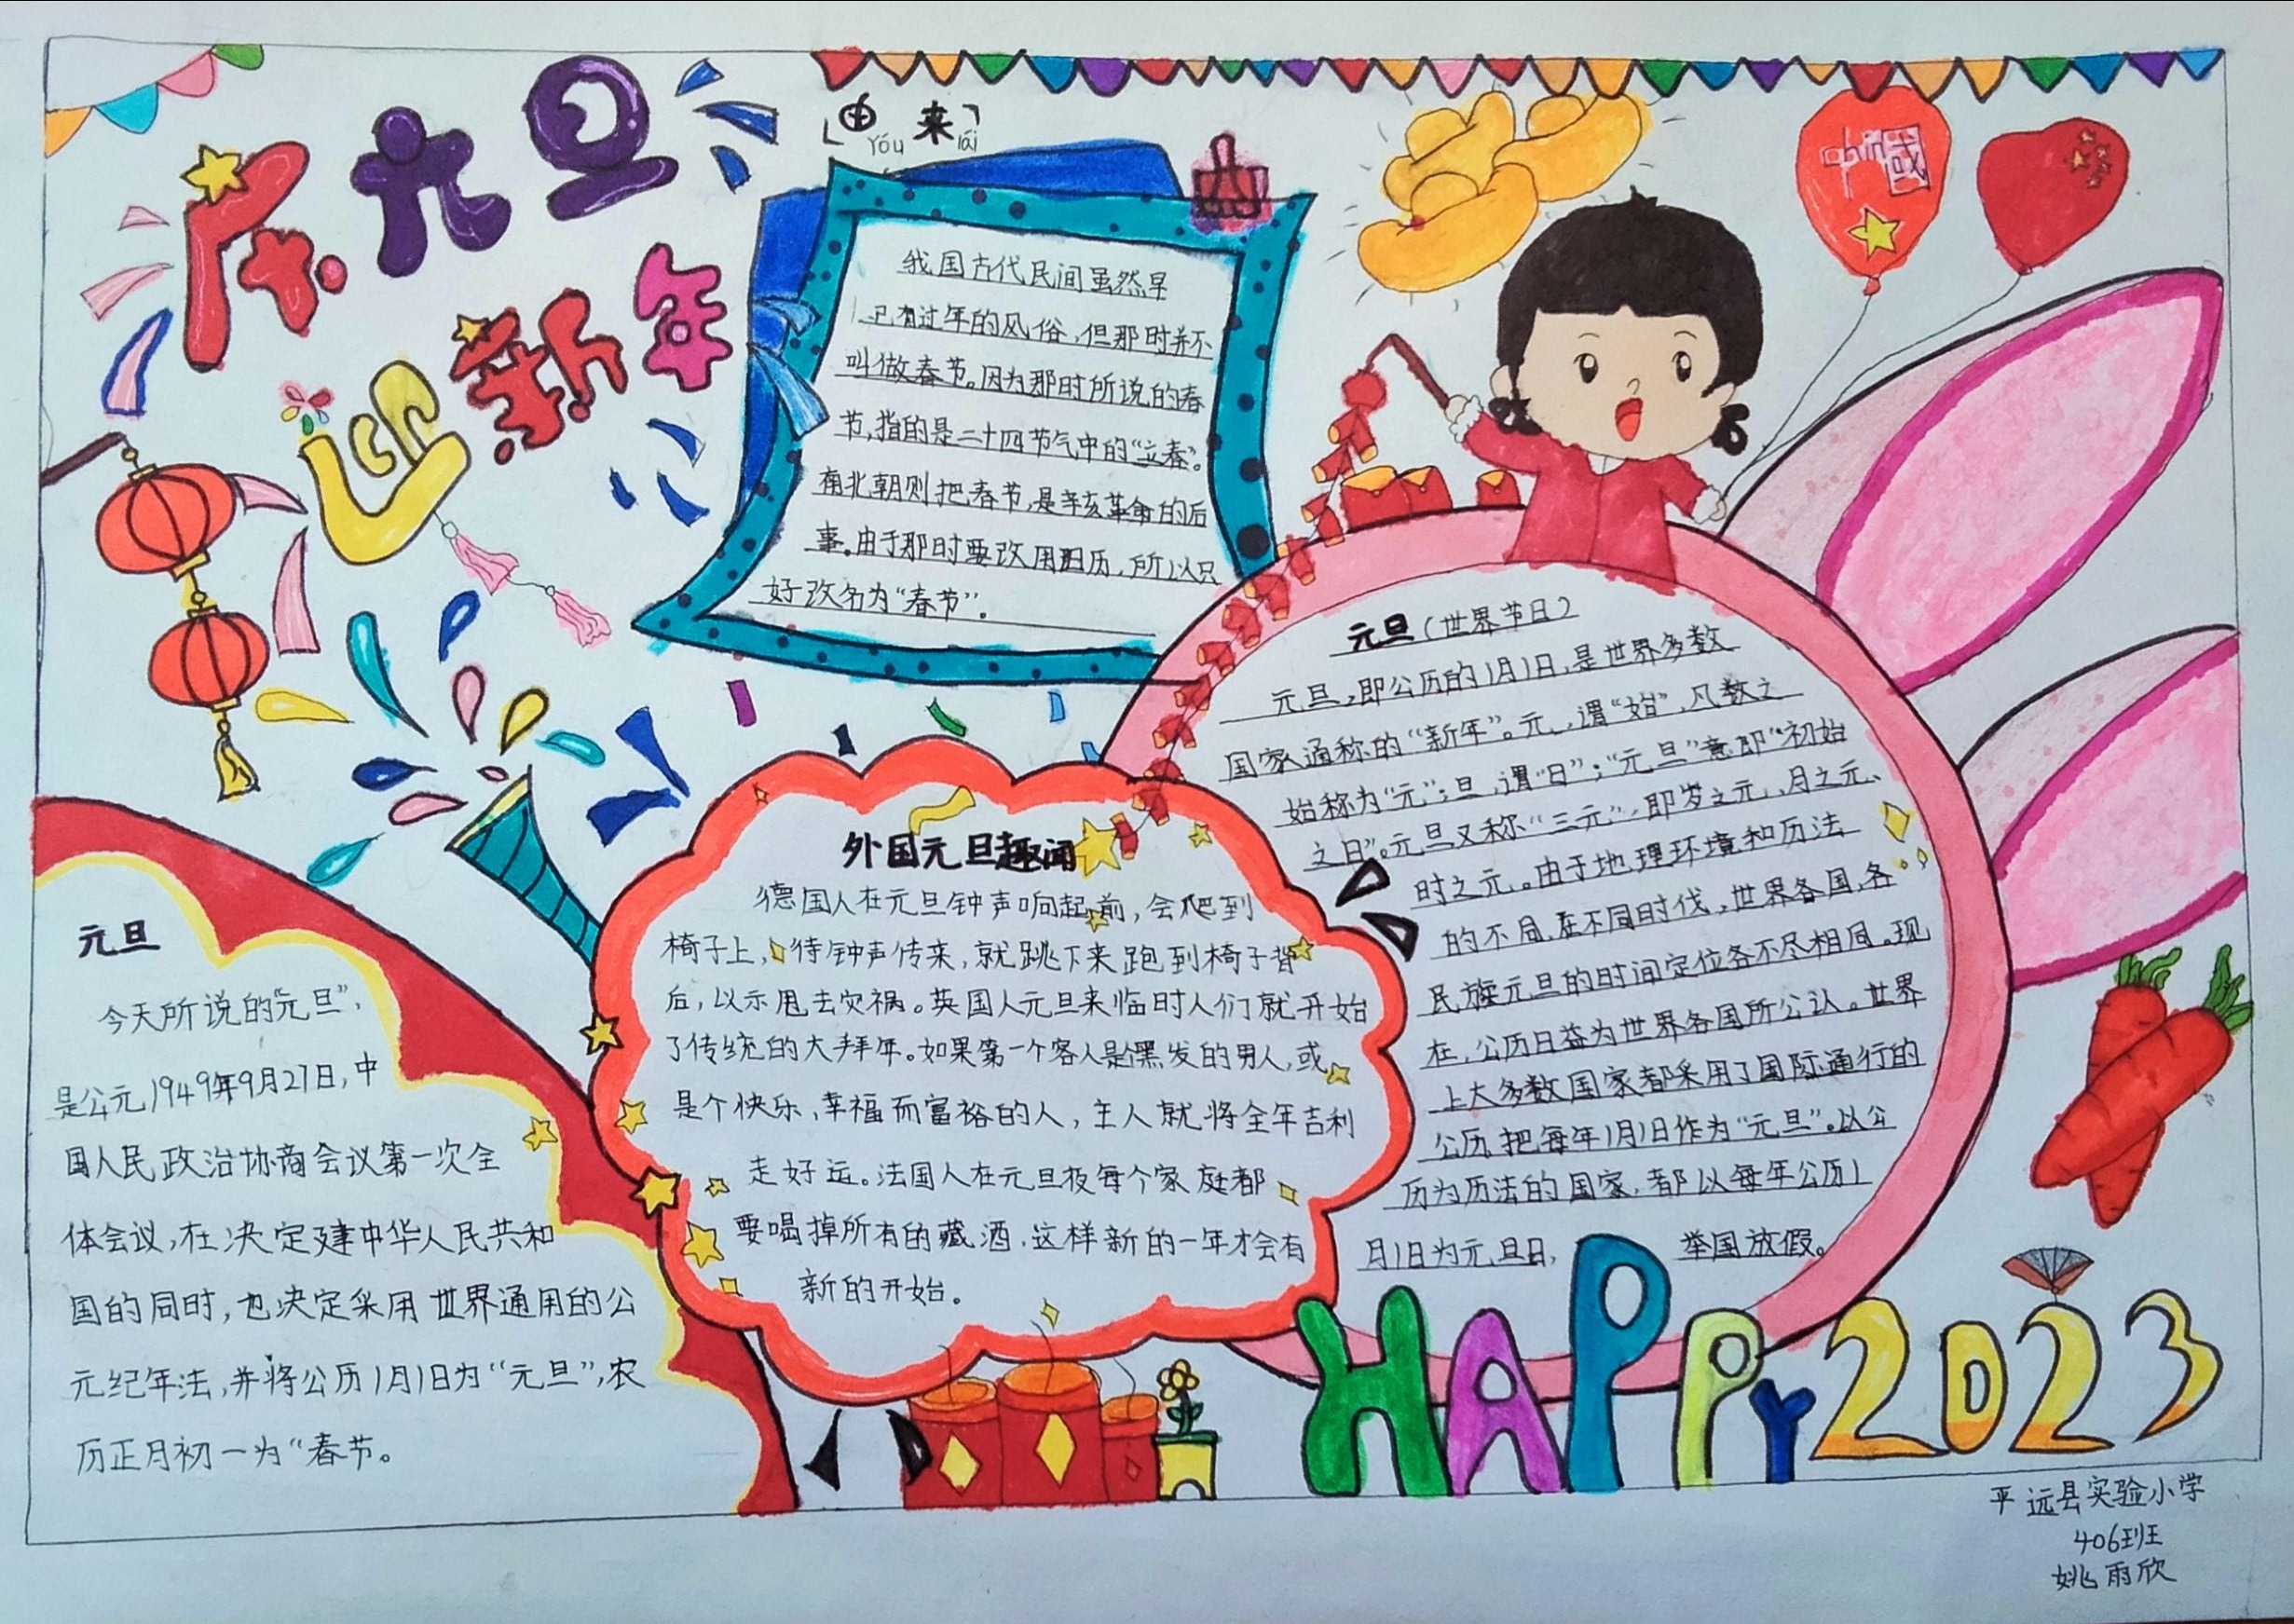 庆元旦
迎新年
「由来」
yóu lái
我国古代民间虽然早
已有过年的风俗,但那时并不
叫做春节。因为那时所说的春
节,指的是二十四节气中的“立春”。
南北朝则把春节,是辛亥革命的后
事。由于那时要改用阳历,所以只
好改名为“春节”。
中國
元旦(世界节日)
元旦,即公历的1月1日,是世界多数
国家通称的“新年”。元,谓“始”,凡数之
始称为“元”;旦,谓“日”;“元旦”意即“初始
之日”。元旦又称“三元”,即岁之元、月之元、
时之元。由于地理环境和历法
的不同,在不同时代,世界各国,各
民族元旦的时间定位各不尽相同。现
在,公历日益为世界各国所公认。世界
上大多数国家都采用了国际通行的
公历,把每年1月1日作为“元旦”。以公
历为历法的国家,都以每年公历1
月1日为元旦日,举国放假。
外国元旦趣闻
德国人在元旦钟声响起前,会爬到
椅子上,待钟声传来,就跳下来跑到椅子背
后,以示甩去灾祸。英国人元旦来临时人们就开始
了传统的大拜年。如果第一个客人是黑发的男人,或
是个快乐,幸福而富裕的人,主人就将全年吉利
走好运。法国人在元旦夜每个家庭都
要喝掉所有的藏酒,这样新的一年才会有
新的开始。
元旦
今天所说的“元旦”,
是公元1949年9月27日,中
国人民政治协商会议第一次全
体会议,在决定建中华人民共和
国的同时,也决定采用世界通用的公
元纪年法,并将公历1月1日为“元旦”,农
历正月初一为“春节。
HAPPY 2023
平远县实验小学
406班
姚雨欣